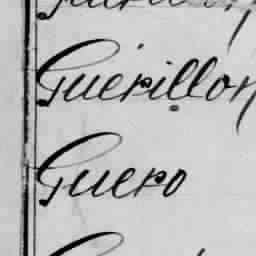 Guérillon
Guero